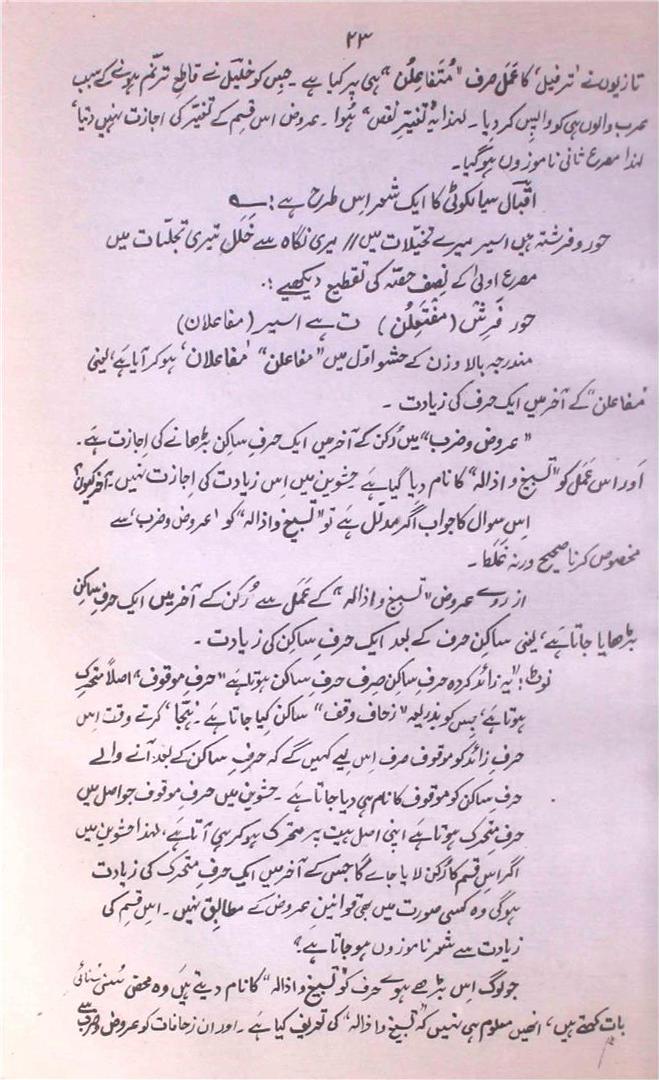 ۲۳
تازیوں نے ’ترفیل‘ کا عَمَل صرف ”مُتَفاعِلُن“ ہی پر کیا ہے ۔ جِس کو خلیل نے قاطعِ ترنّم ہونے کے سبب
عرب والوں ہی کو واپس کر دیا ۔ لہٰذا یہ تغیّرِ نقص ہُوا ۔ عروض اس قسم کے تغیّر کی اجازت نہیں دیتا‘
لہٰذا مصرع ثانی ناموزوں ہو گیا ۔
اقبال سیالکوٹی کا ایک شعر اِس طرح ہے :
حور و فرشتہ ہیں اسیر میرے تخیّلات میں // میری نگاہ سے خَلَل تیری تجلّیات میں
مصرع اولیٰ کے نصِف حصّہ کی تقطیع دیکھیے :
حور فَرِش (مفتَعِلُن) ت ہے اسیر (مفاعلان)
مندرجہ بالا وزن کے حشوِ اوّل میں ”مفاعلن“ ’مفاعلان‘ ہو کر آیا ہَے‘ یعنی
’مفاعلن‘ کے آخر میں ایک حرف کی زیادت ۔
”عروض و ضرب“ میں رُکن کے آخر میں ایک حرفِ ساکِن بڑھانے کی اِجازت ہَے ۔
اَور اس عَمَل کو ”تسبیغ و اذالہ“ کا نام دِیا گیا ہَے حشوین میں اِس زیادت کی اِجازت نہیں ۔ آخر کیوں؟
اِس سوال کا جواب اگر مدلّل ہَے تو ”تسبیغ و اذالہ“ کو ’عروض و ضرب‘ سے
مخصوص کرنا صحیح ورنہ غَلَط ۔
از روے عروض ”تسبیغ و اذالہ“ کے عَمَل سے رُکن کے آخر میں ایک حرفِ ساکِن
بڑھایا جاتا ہَے‘ یعنی ساکِن حرف کے بعد ایک حرفِ ساکِن کی زیادت ۔
نوٹ : ”یہ زائد کردہ حرفِ ساکِن صِرف حرفِ ساکِن ہوتا ہَے ”حرفِ موقوف“ اصلاً متحرک
ہوتا ہے‘ جِس کو بذریعہ ”زحافِ وقف“ ساکِن کیا جاتا ہے ۔ نتیجتاً ‘ کرتے وقت اِس
حرفِ زائد کو موقوف صرف اِس لیے کہیں گے کہ حرفِ ساکِن کے بعد آنے والے
حرفِ ساکِن کو موقوف کا نام ہی دیا جاتا ہے ۔ حشوین میں حرفِ موقوف جو اصل میں
حرفِ متحرک ہوتا ہے اپنی اصل ہیت پر متحرک ہو کر ہی آتا ہَے‘ لہٰذا حشوین میں
اگر اِس قِسم کا رُکن لایا جاے گا جِس کے آخر میں ایک حرفِ متحرک کی زیادت
ہوگی وہ کسی صورت میں بھی قوانینِ عروض کے مطابِق نہیں ۔ اِس قِسم کی
زیادت سے شعر ناموزوں ہو جاتا ہے“
جو لوگ اِس بڑھے ہوے حرف کو ”تسبیغ و اذالہ“ کا نام دیتے ہیں وہ محض سُنی سنائی
بات کہتے ہیں‘ انھیں معلوم ہی نہیں کہ ”تسبیغ و اذالہ“ کی تعریف کیا ہَے ۔ اور اِن زحافات کو عروض و ضرب سے